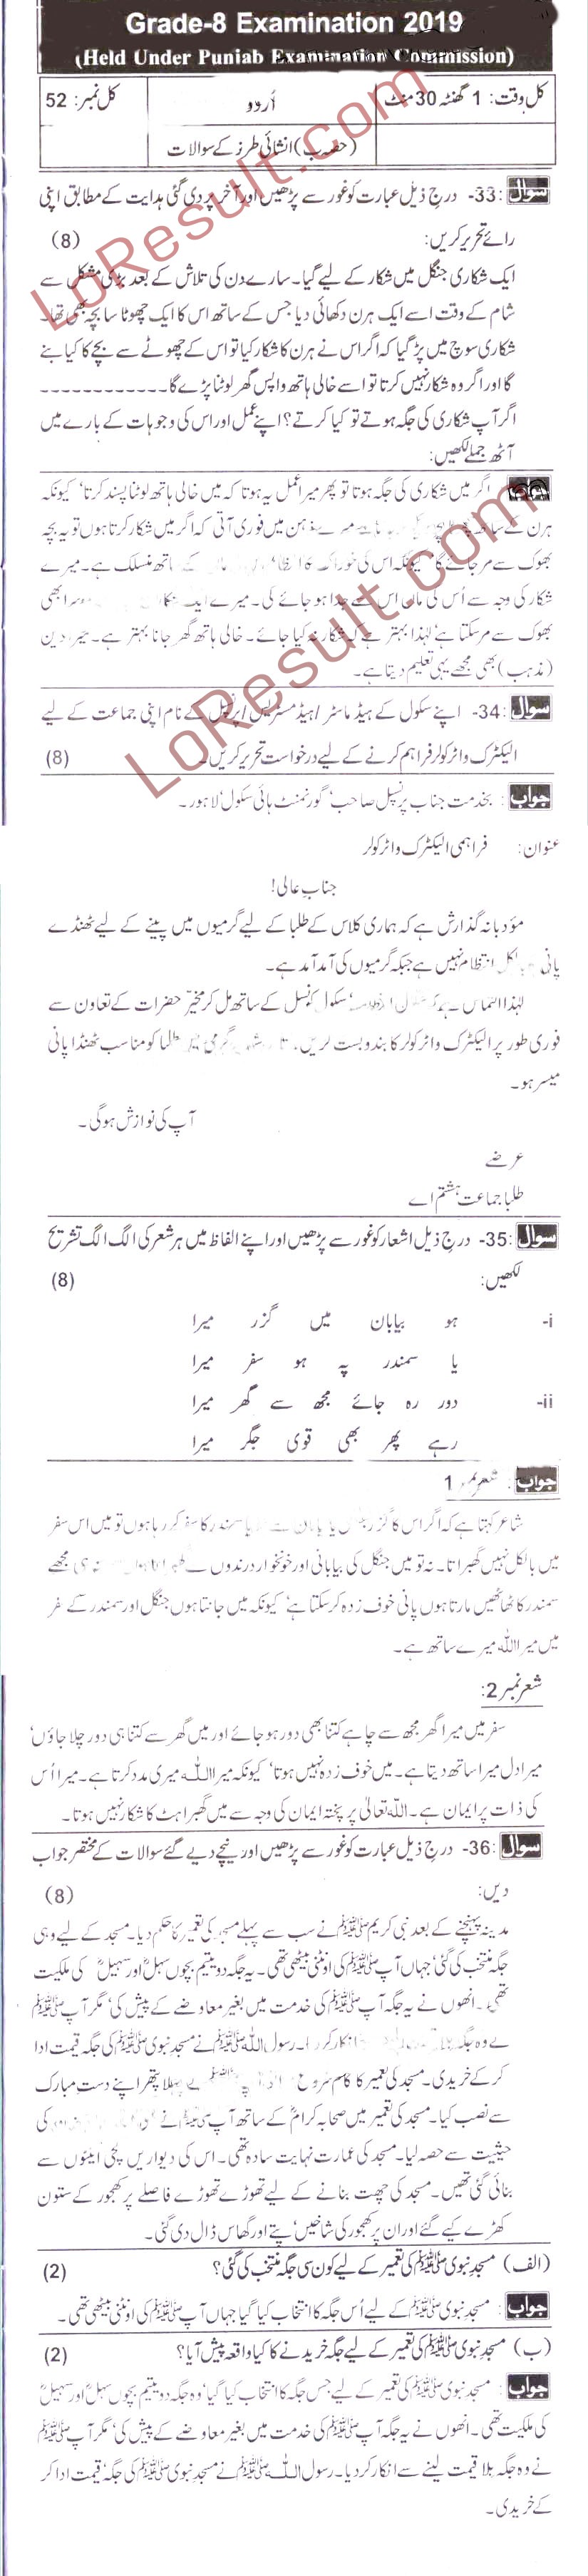 Grade-8 Examination 2019
(Held Under Punjab Examination Commission)
کل وقت: 1 گھنٹہ 30 منٹ
اُردو
کل نمبر: 52
(حصہ ب) انشائی طرز کے سوالات
سوال 33:- درج ذیل عبارت کو غور سے پڑھیں اور آخر پر دی گئی ہدایت کے مطابق اپنی
رائے تحریر کریں: (8)
ایک شکاری جنگل میں شکار کے لیے گیا۔ سارے دن کی تلاش کے بعد بڑی مشکل سے
شام کے وقت اسے ایک ہرن دکھائی دیا جس کے ساتھ اس کا ایک چھوٹا سا بچہ بھی تھا۔
شکاری سوچ میں پڑ گیا کہ اگر اس نے ہرن کا شکار کیا تو اس کے چھوٹے سے بچے کا کیا بنے
گا اور اگر وہ شکار نہیں کرتا تو اسے خالی ہاتھ واپس گھر لوٹنا پڑے گا۔------------
اگر آپ شکاری کی جگہ ہوتے تو کیا کرتے؟ اپنے عمل اور اس کی وجوہات کے بارے میں
آٹھ جملے لکھیں:
اگر میں شکاری کی جگہ ہوتا تو پھر میرا عمل یہ ہوتا کہ میں خالی ہاتھ لوٹنا پسند کرتا، کیونکہ
ہرن کے ساتھ ذہن میں فوری آتی کہ اگر میں شکار کرتا ہوں تو یہ بچہ
بھوک سے مر جائے گا کیونکہ اس کی خوراک کا ساتھ منسلک ہے۔ میرے
شکار کی وجہ سے اُس کی ماں اس سے جدا ہو جائے گی۔ میرے ایک بھی
بھوک سے مر سکتا ہے لہٰذا بہتر ہے کہ شکار نہ کیا جائے۔ خالی ہاتھ گھر جانا بہتر ہے۔ میرا دین
(مذہب) بھی مجھے یہی تعلیم دیتا ہے۔
سوال 34:- اپنے سکول کے ہیڈ ماسٹر/ہیڈ مسٹریس/پرنسپل کے نام اپنی جماعت کے لیے
الیکٹرک واٹر کولر فراہم کرنے کے لیے درخواست تحریر کریں۔ (8)
جواب: بخدمت جناب پرنسپل صاحب، گورنمنٹ ہائی سکول، لاہور۔
عنوان: فراہمی الیکٹرک واٹر کولر
جنابِ عالی!
مؤدبانہ گذارش ہے کہ ہماری کلاس کے طلبا کے لیے گرمیوں میں پینے کے لیے ٹھنڈے
پانی کا بالکل انتظام نہیں ہے جبکہ گرمیوں کی آمد آمد ہے۔
لہٰذا التماس ہے سکول کونسل کے ساتھ مل کر مخیر حضرات کے تعاون سے
فوری طور پر الیکٹرک واٹر کولر کا بندوبست کریں، گرمی میں طلبا کو مناسب ٹھنڈا پانی
میسر ہو۔
آپ کی نوازش ہوگی۔
عرضے
طلبا جماعت ہشتم اے
سوال 35:- درج ذیل اشعار کو غور سے پڑھیں اور اپنے الفاظ میں ہر شعر کی الگ الگ تشریح
لکھیں: (8)
i- ہو بیابان میں گزر میرا
یا سمندر پہ ہو سفر میرا
ii- دور رہ جائے مجھ سے گھر میرا
رہے پھر بھی قوی جگر میرا
جواب: شعر نمبر 1
شاعر کہتا ہے کہ اگر اس کا گزر سمندر کا سفر کر رہا ہوں تو میں اس سفر
میں بالکل نہیں گھبراتا۔ نہ تو میں جنگل کی بیابانی اور خونخوار درندوں سے مجھے
سمندر کا ٹھاٹھیں مارتا ہوں پانی خوف زدہ کر سکتا ہے، کیونکہ میں جانتا ہوں جنگل اور سمندر کے سفر
میں میرا اللہ میرے ساتھ ہے۔
شعر نمبر 2:
سفر میں میرا گھر مجھ سے چاہے کتنا بھی دور ہو جائے اور میں گھر سے کتنا ہی دور چلا جاؤں،
میرا دل میرا ساتھ دیتا ہے۔ میں خوف زدہ نہیں ہوتا، کیونکہ میرا اللہ میری مدد کرتا ہے۔ میرا اُس
کی ذات پر ایمان ہے۔ اللہ تعالیٰ پر پختہ ایمان کی وجہ سے میں گھبراہٹ کا شکار نہیں ہوتا۔
سوال 36:- درج ذیل عبارت کو غور سے پڑھیں اور نیچے دیے گئے سوالات کے مختصر جواب
دیں: (8)
مدینہ پہنچنے کے بعد نبی کریم ﷺ نے سب سے پہلے مسجد کی تعمیر کا حکم دیا۔ مسجد کے لیے وہی
جگہ منتخب کی گئی، جہاں آپ ﷺ کی اونٹنی بیٹھی تھی۔ یہ جگہ دو یتیم بچوں سہلؓ اور سہیلؓ کی ملکیت
تھی۔ انھوں نے یہ جگہ آپ ﷺ کی خدمت میں بغیر معاوضے کے پیش کی، مگر آپ ﷺ
نے وہ جگہ انکار کر دیا۔ رسول اللہ ﷺ نے مسجد نبوی ﷺ کی جگہ قیمت ادا
کر کے خریدی۔ مسجد کی تعمیر کا کام شروع پہلا پتھر اپنے دستِ مبارک
سے نصب کیا۔ مسجد کی تعمیر میں صحابہ کرامؓ کے ساتھ آپ ﷺ نے کی
حیثیت سے حصہ لیا۔ مسجد کی عمارت نہایت سادہ تھی۔ اس کی دیواریں کچی اینٹوں سے
بنائی گئی تھیں۔ مسجد کی چھت بنانے کے لیے تھوڑے تھوڑے فاصلے پر کھجور کے ستون
کھڑے کیے گئے اور ان پر کھجور کی شاخیں، پتے اور گھاس ڈال دی گئی۔
(الف) مسجد نبوی ﷺ کی تعمیر کے لیے کون سی جگہ منتخب کی گئی؟ (2)
جواب: مسجد نبوی ﷺ کے لیے اُس جگہ کا انتخاب کیا گیا جہاں آپ ﷺ کی اونٹنی بیٹھی تھی۔
(ب) مسجد نبوی ﷺ کی تعمیر کے لیے جگہ خریدنے کا کیا واقعہ پیش آیا؟ (2)
جواب: مسجد نبوی ﷺ کی تعمیر کے لیے جس جگہ کا انتخاب کیا گیا، وہ جگہ دو یتیم بچوں سہلؓ اور سہیلؓ
کی ملکیت تھی۔ انھوں نے یہ جگہ آپ ﷺ کی خدمت میں بغیر معاوضے کے پیش کی، مگر آپ ﷺ
نے وہ جگہ بلا قیمت لینے سے انکار کر دیا۔ رسول اللہ ﷺ نے مسجد نبوی ﷺ کی جگہ، قیمت ادا کر
کے خریدی۔
LoResult.com
LoResult.com